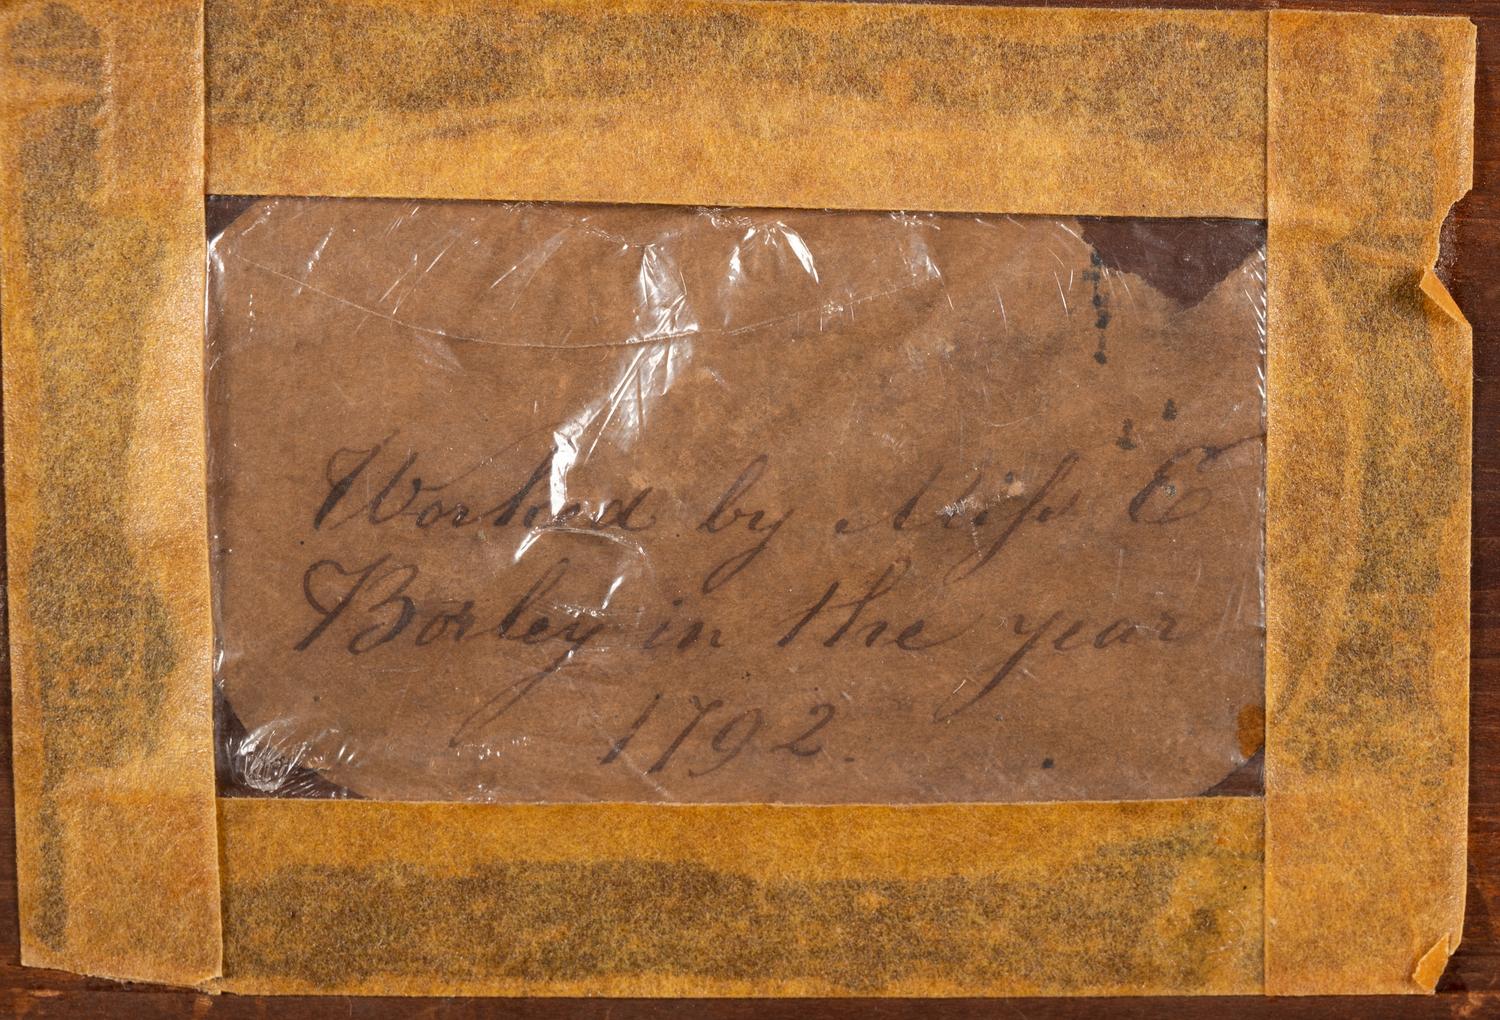 Worked by Miſs E
Borley in the year
1792.